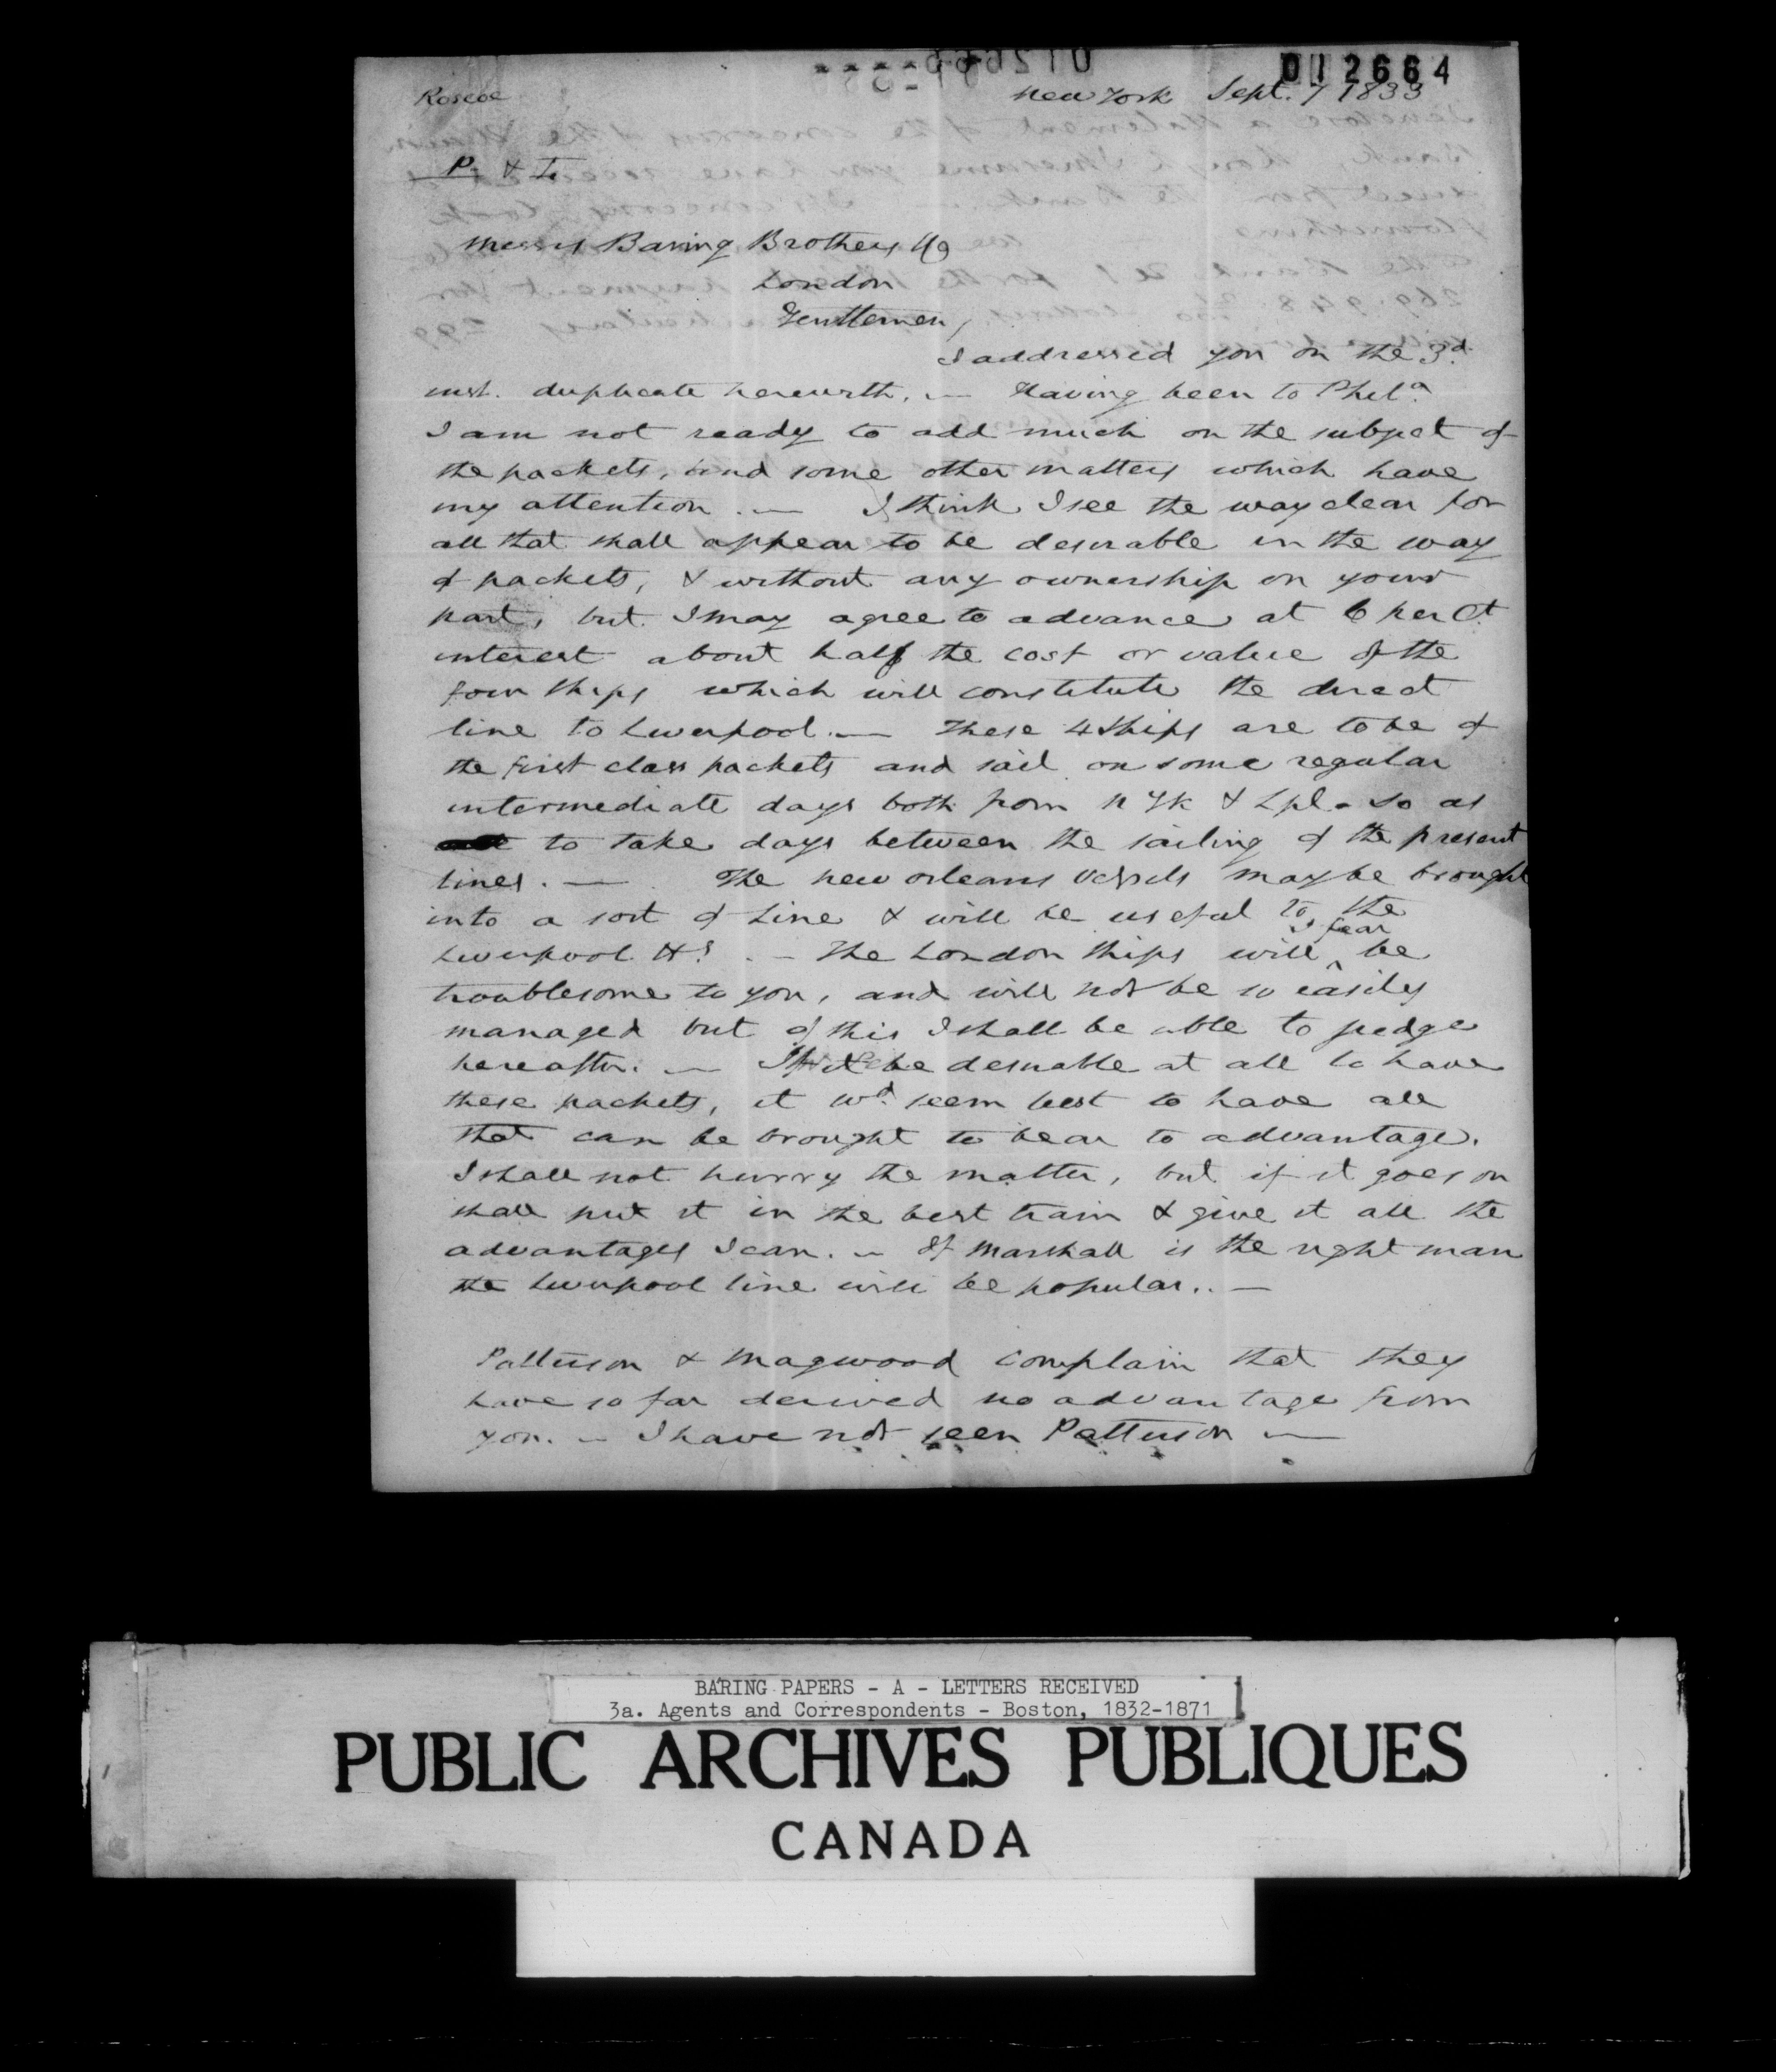 012664
Roscoe
New York Sept. 7 1833
P. & To
Messrs Baring Brothers & Co
London
Gentlemen,
I addressed you on the 3d.
inst. duplicate herewith. — Having been to Phila.
I am not ready to add much on the subject of
the packets, and some other matters which have
my attention. — I think I see the way clear for
all that shall appear to be desirable in the way
of packets, & without any ownership on your
part, but I may agree to advance at 6 per Ct
interest about half the cost or value of the
four ships which will constitute the direct
line to Liverpool. — These 4 ships are to be of
the first class packets and sail on some regular
intermediate days both from N Yk & Lpl. so as
to take days between the sailing of the present
lines. — The New Orleans vessels may be brought
into a sort of Line & will be useful to the
Liverpool Hs. — The London ships will I fear be
troublesome to you, and will not be so easily
managed but of this I shall be able to judge
hereafter. — If it be desirable at all to have
these packets, it wd. seem best to have all
that can be brought to bear to advantage.
I shall not hurry the matter, but if it goes on
shall put it in the best train & give it all the
advantages I can. — If Marshall is the right man
the Liverpool line will be popular. —
Patterson & Magwood complain that they
have so far derived no advantage from
you. — I have not seen Patterson —
BARING PAPERS - A - LETTERS RECEIVED
3a. Agents and Correspondents - Boston, 1832-1871
PUBLIC ARCHIVES PUBLIQUES
CANADA